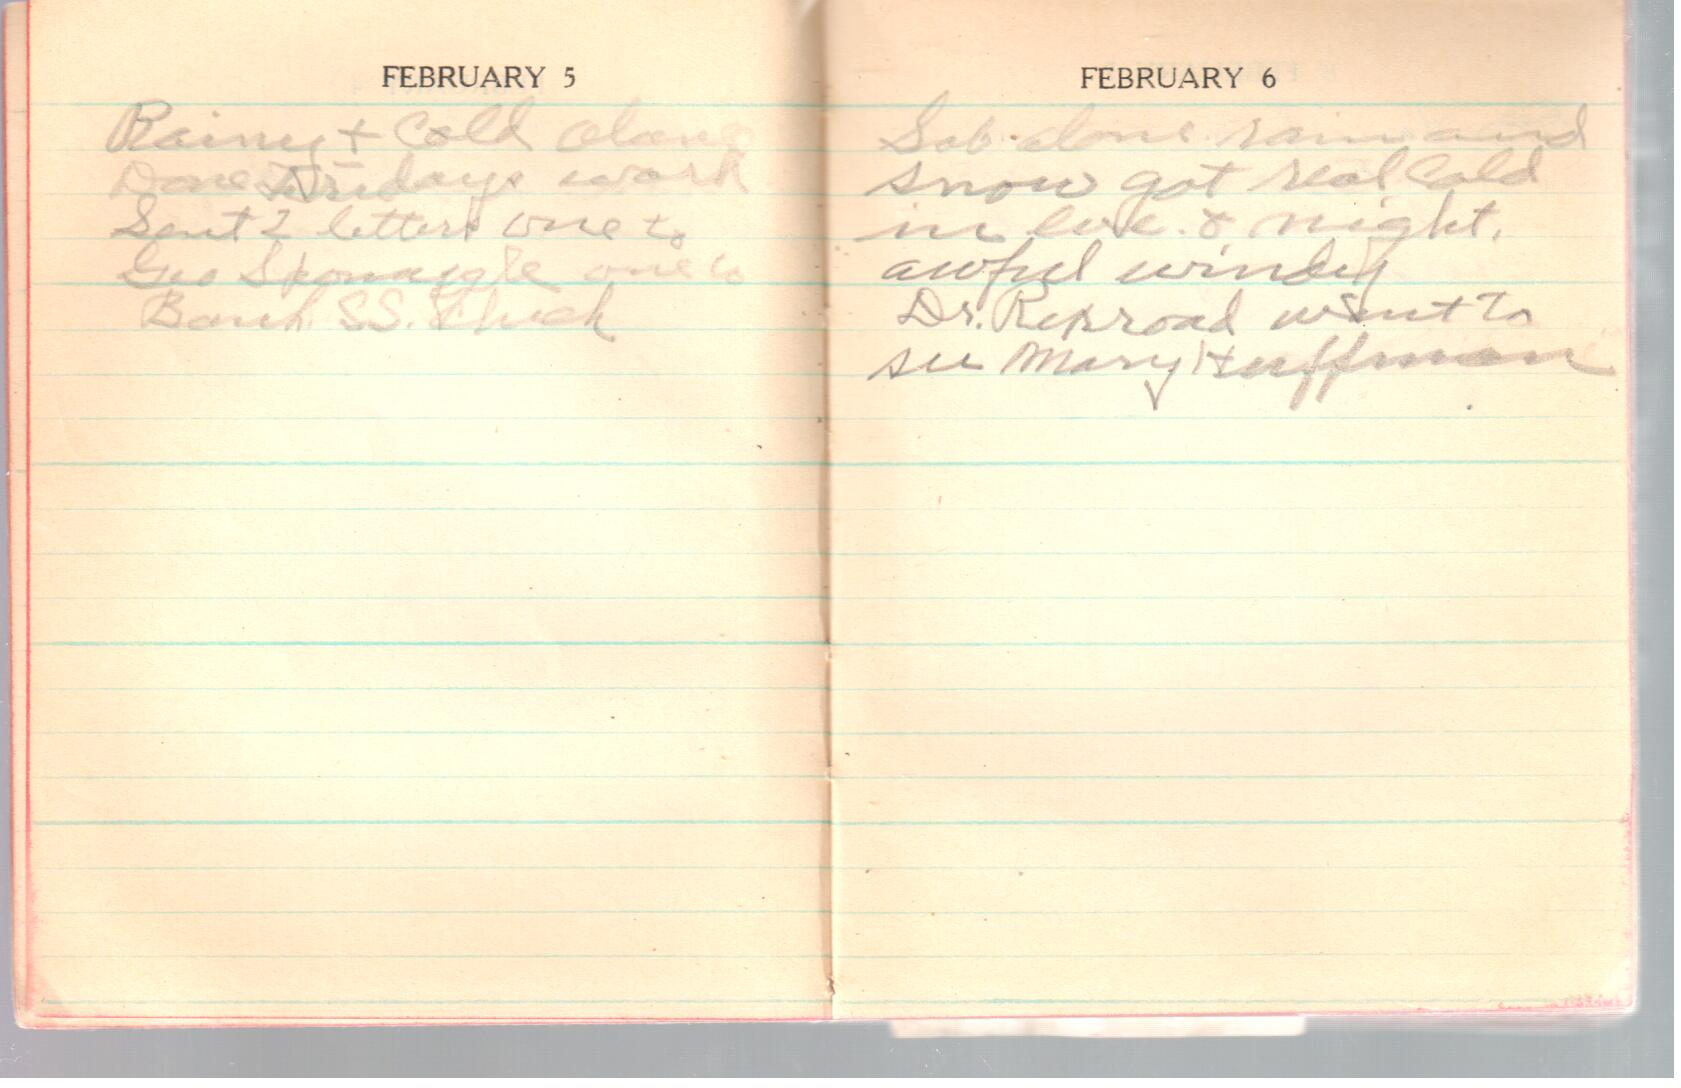 FEBRUARY 5
Rainy + Cold alone
Done Fridays work
Sent 2 letters one to
Geo Sponaugle one to
Bank. S.S. Check
FEBRUARY 6
Sab alone rain and
snow got real Cold
in eve. & night.
awful windy
Dr. Rexroad went to
see Mary Huffman